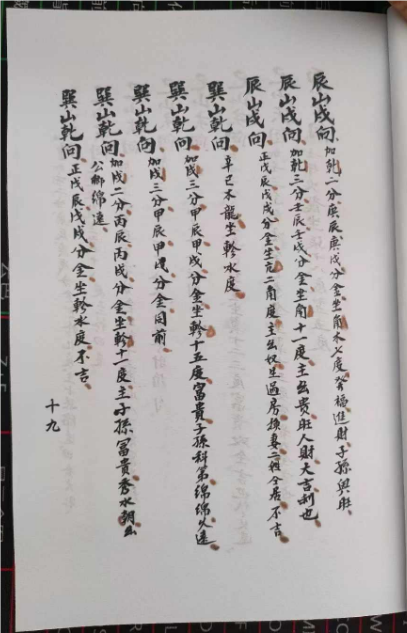 辰山戌向、加乾二分、庚辰庚戌分金坐角木七度發福進財子孫興旺
辰山戌向、加乾三分壬辰壬戌分金坐角十一度主出贵旺人財大吉利也
辰山戌向、正戊辰戊戌分金坐亢二角度主出奴生過房换妻二姓仝居不吉
辛巳木龍坐軫水度
巽山乾向、加戌三分甲辰甲戌分金坐軫十五度富貴子孫科第綿綿久遠
巽山乾向、
巽山乾向、加戌三分甲辰甲戌分金同前
巽山乾向、加戌二分丙辰丙戌分金坐軫十一度主子孫冨貴秀水朝出
公卿綿遠、
巽山乾向、正戊辰戊戌分金坐軫水度不吉
十九